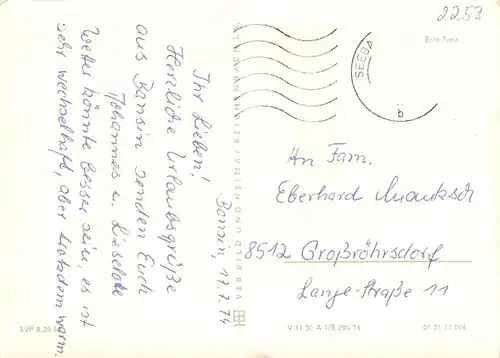 2253
Echt Foto
SEEBA
b
Bansin, 17.7.74
Ihr Lieben!
Herzliche Urlaubsgrüße
aus Bansin senden Euch
Johannes u. Lieselotte
Wetter könnte besser sein, es ist
sehr wechselhaft, aber trotzdem warm.
VEB BILD UND HEIMAT REICHENBACH I. V.
An Fam.
Eberhard
8512 Großröhrsdorf
Lange-Straße 11
EVP 0,20
V 11 50 A 1/B 290/74
01 01 11 014